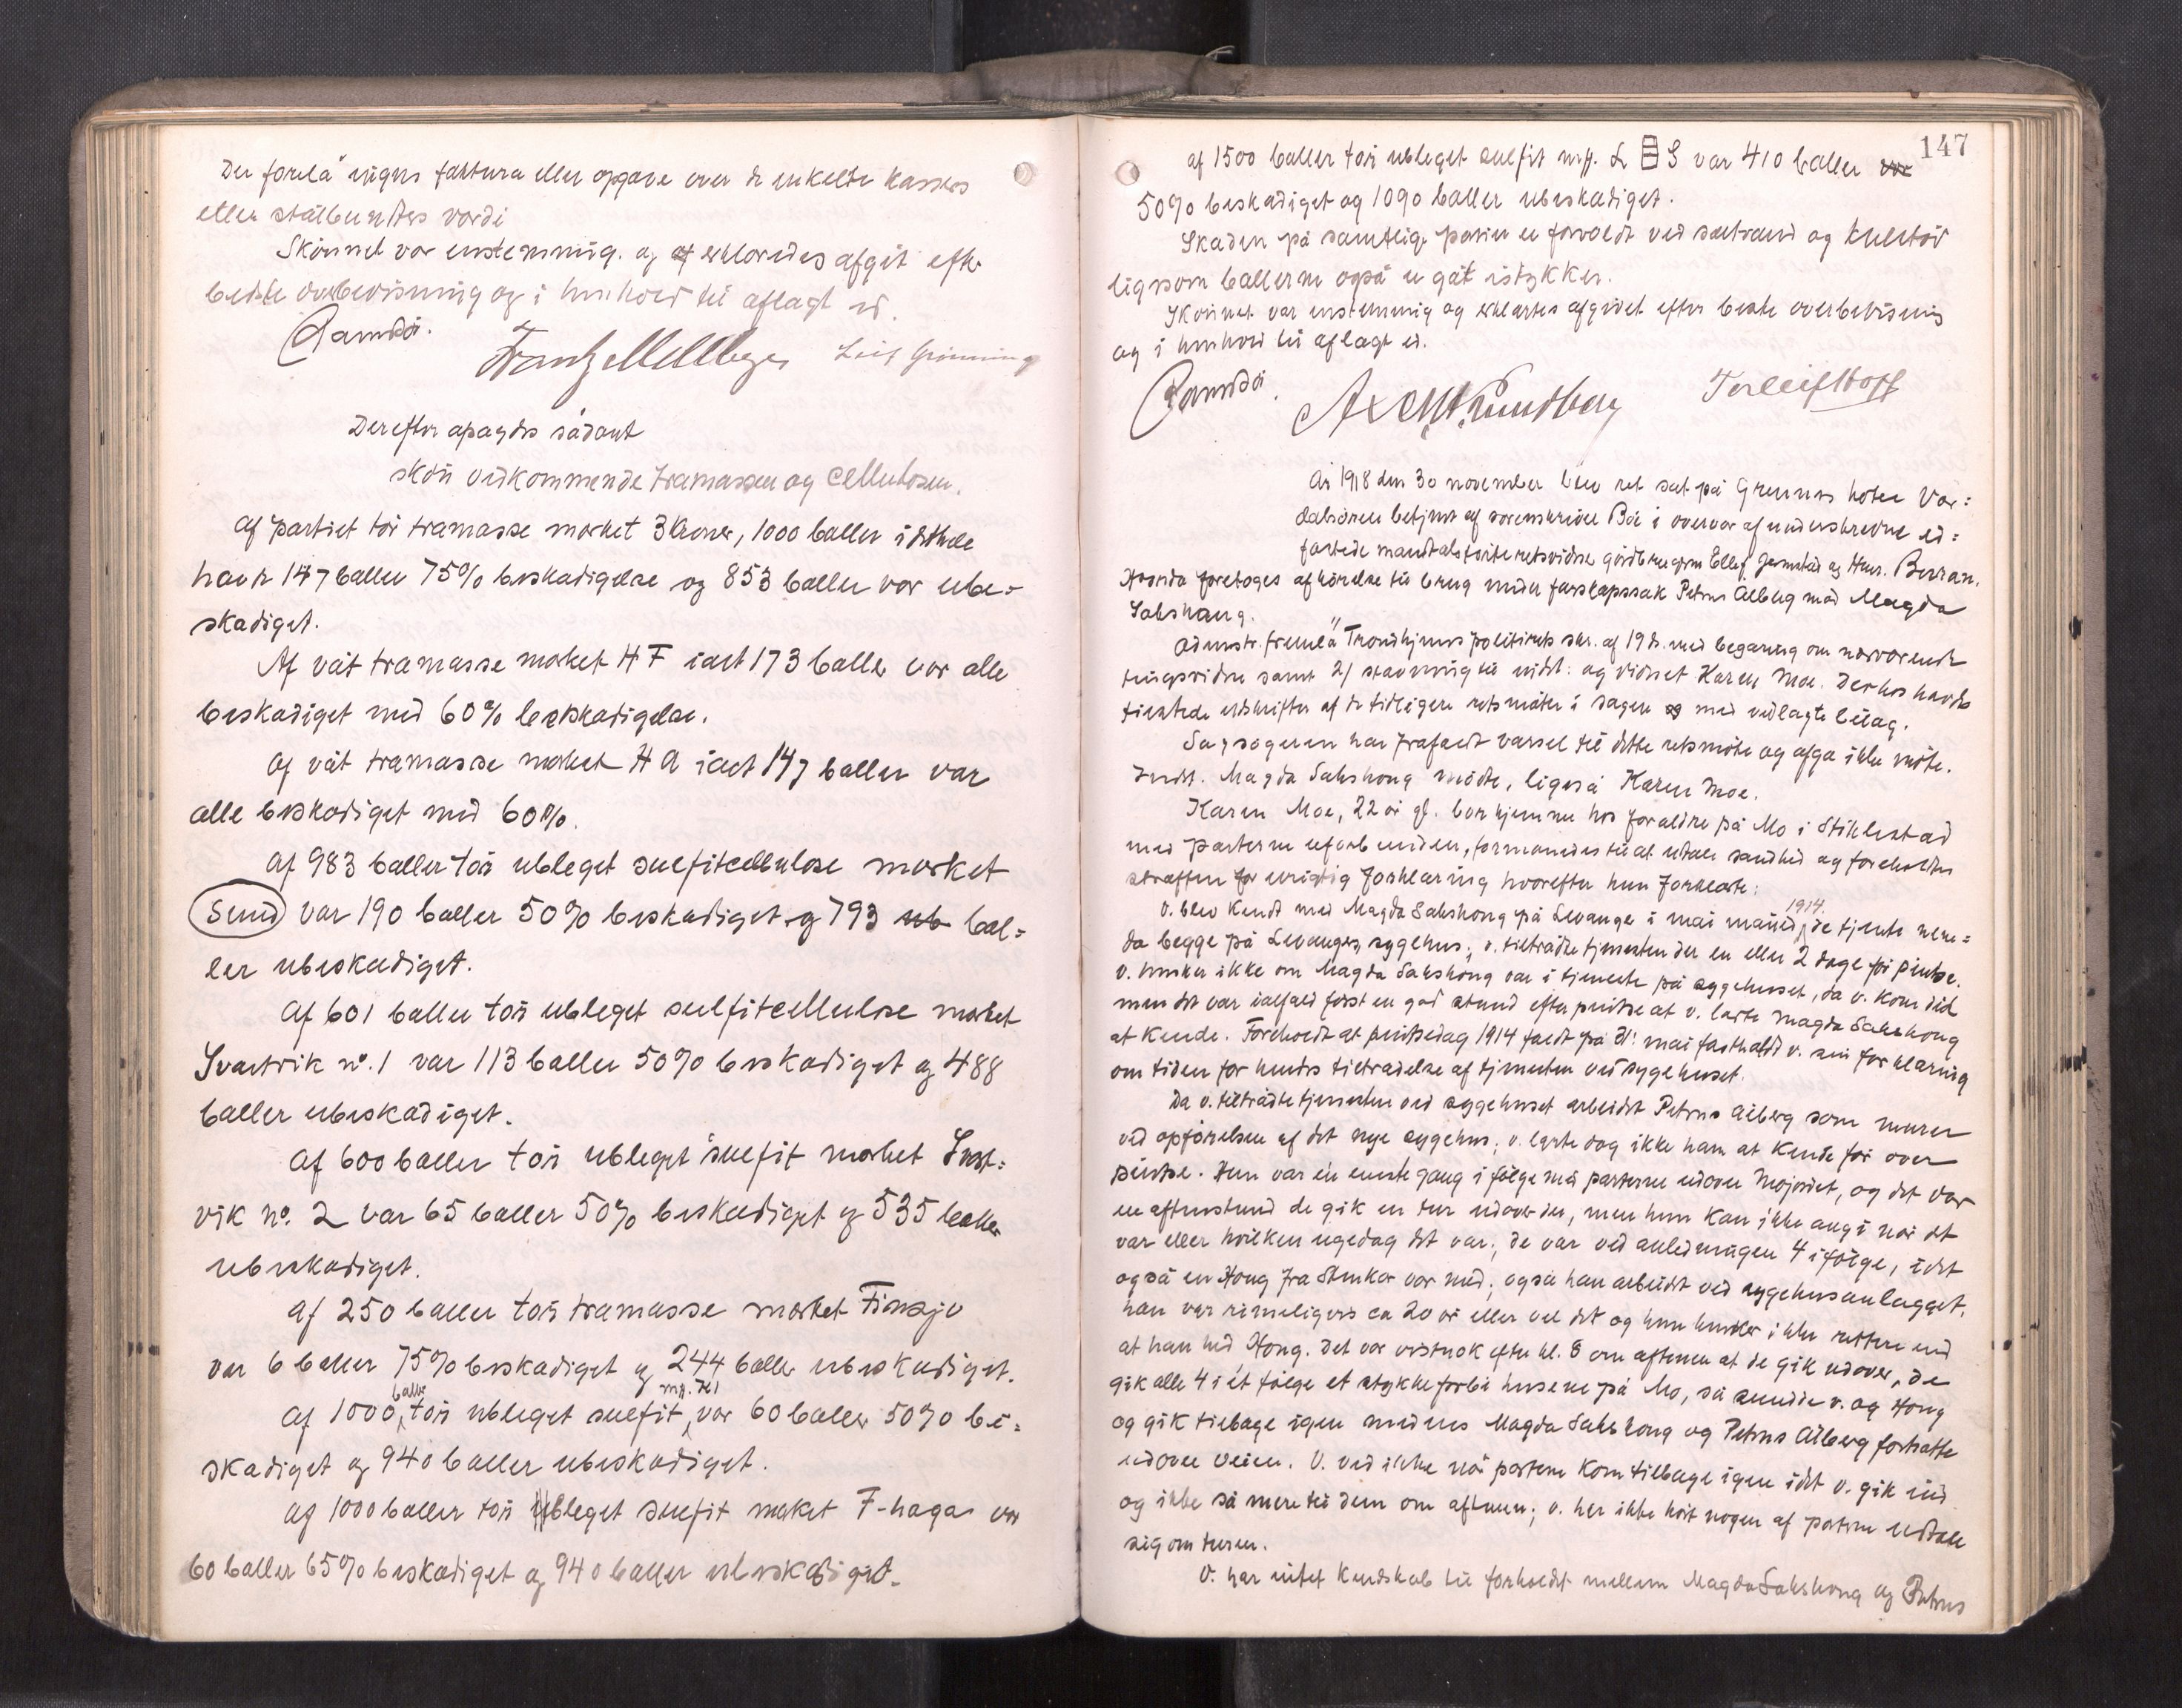 Der forelå ingen faktura eller opgave over de enkelte kassers
eller stålbundtes værdi
Skønnet var enstemmig. og erklæredes afgit efter
bedste overbevisning og i henhold til aflagt ed.
Leif Grönning
Derefter afgaves sådant
skön vedkommende tramassen og cellulosen.
Af partiet tör tramasse merket 3 Kroner, 1000 baller i dthele
havde 147 baller 75% beskadigelse og 853 baller var ube=
skadiget.
Af våt tramasse merket H F ialt 173 baller var alle
beskadiget med 60% beskadigelse.
Af våt tramasse merket H A ialt 147 baller var
alle beskadiget med 60%.
Af 983 baller tör ubleget sulfitcellulose merket
Sund var 190 baller 50% beskadiget og 793 ub bal=
ler ubeskadiget.
Af 601 baller tör ubleget sulfitcellulose merket
Svartvik no. 1 var 113 baller 50% beskadiget og 488
baller ubeskadiget.
Af 600 baller tör ubleget sulfit merket Svart=
vik no. 2 var 65 baller 50% beskadiget og 535 baller
ubeskadiget.
Af 250 baller tör tramasse merket Finsjö
var 6 baller 75% beskadiget og 244 baller ubeskadiget.
Af 1000 baller tör ubleget sulfit, var 60 baller 50% be=
skadiget og 940 baller ubeskadiget.
Af 1000 baller tör ubleget sulfit merket F-haga var
60 baller 65% beskadiget og 940 baller ubeskadiget.
147
af 1500 baller tör ubleget sulfit mrk. L S var 410 baller var
50% beskadiget og 1090 baller ubeskadiget.
Skaden på samtlige partier er forvoldt ved sjøvand og kulstöv
ligesom ballerne også er gåt istykker.
Skönnet var enstemmig og erklærtes afgivet efter beste overbevisning
og i henhold til aflagt ed.
Axel M. Lundberg Torleif Hoff
År 1918 den 30 november blev ret sat på Grennes hotel Vær=
dalsören betjent af sorenskriver Bö i overvær af underskrevne ed=
fæstede mandtalsförte retsvidne gårdbruger Ellef Jermstad og Hans Berran.
Hvorda foretoges afhörelse til brug under farskapssak Petrus Ålberg mod Magda
Sakshaug.
Adminstr. fremla Trondhjems politirets skr. af 19 ds. med begæring om nærværende
tingsvidne samt 2/ stævning til indst. og vidnet Karen Moe. Derhos havde
tilstede utskrifter af de tidligere retsmöter i sagen og med vedlagte bilag.
Sagsögeren har frafaldt varsel til dette retsmöte og afga ikke möte.
Indst. Magda Sakshaug mödte, ligeså Karen Moe.
Karen Moe, 22 år gl. bor hjemme hos foraldre på Mo i Stiklestad
med parterne uforbunden, formanedes til at utale sandhed og foreholdtes
straffen for urigtig forklaring hvorefter hun forklarte:
V. blev kendt med Magda Sakshong på Levanger i mai måned 1914, de tjente nem=
da begge på Levangers sygehus; v. tiltrådte tjenesten der en eller 2 dage för pintse.
V. husker ikke om Magda Sakshong var i tjeneste på sygehuset, da v. kom did
men det var ialfald först en god stund efter pintse at v. lærte Magda Sakshong
at kende. Foreholdt at pintsedag 1914 faldt på 31. mai fastholdt v. sin forklaring
om tiden for hendes tiltrædelse af tjenesten ved sygehuset.
Da v. tiltrådte tjenesten ved sygehuset arbeidet Petrus Ålberg som murer
ved opförelsen af det nye sygehus; v. lærte dog ikke ham at kende för over
pintse. Hun var en eneste gang i fölge med parterne udover Mojordet, og det var
en aftenstund de gik en tur udover der, men hun kan ikke angi når det
var eller hvilken ugedag det var; de var ved anledningen 4 i fölge, idet
også en Hong fra Stenkær var med; også han arbeidet ved sygehusanlægget,
han var rimeligvis ca 20 år eller vel det og hun husker ikke rettere end
at han hed Hong. Det var vistnok efter kl. 8 om aftenen at de gik udover, de
gik alle 4 i ét fölge et stykke forbi husene på Mo, så snudde v. og Hong
og gik tilbage igen medens Magda Sakshong og Petrus Ålberg fortsatte
udover veien. V. ved ikke når parterne kom tilbage igen idet v. gik ind
og ikke så mere til dem om aftenen; v. har ikke hört nogen af parterne udtale
sig om turen.
V. har intet kendskab til forholdet mellem Magda Sakshong og Petrus